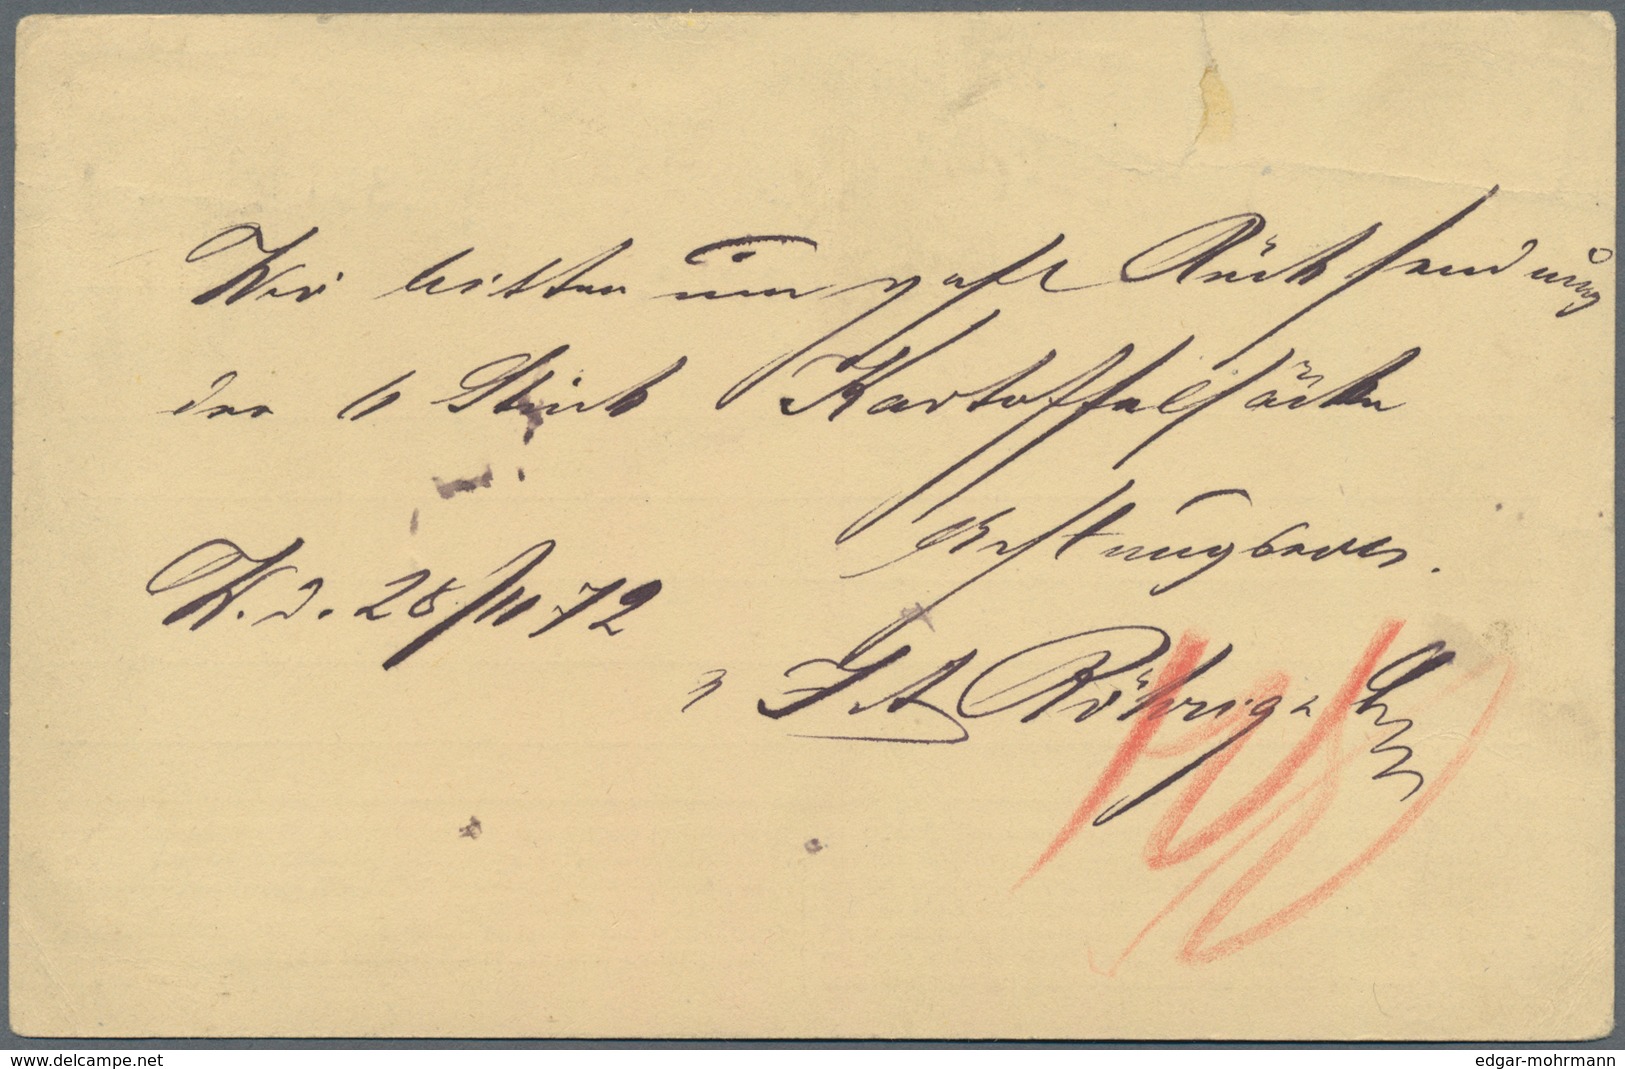 Wir bitten um gefl Rücksendung
der 11 Stück Kartoffelsäcke
Achtungsvoll.
W. d. 28/11 72
J A Röhrig &
www.delcampe.net
edgar-mohrmann